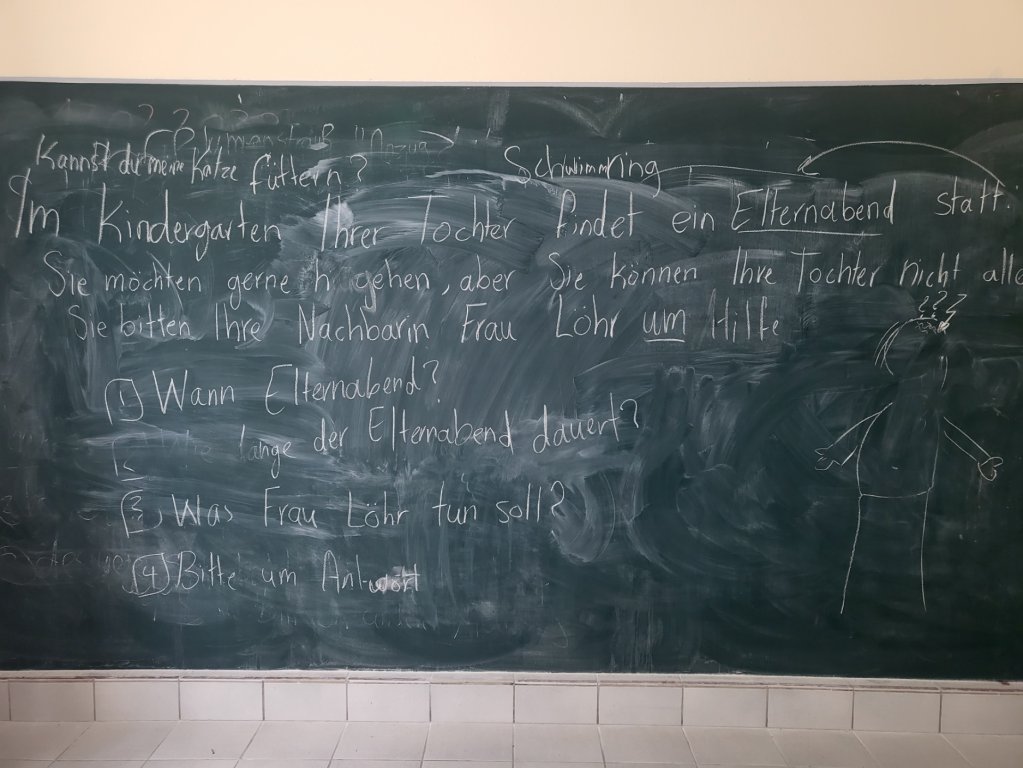 Blumenstrauß "Anzug
Kannst du meine Katze füttern?
Schwimmring
Im Kindergarten Ihrer Tochter findet ein Elternabend statt.
Sie möchten gerne h gehen, aber Sie können Ihre Tochter nicht alle
Sie bitten Ihre Nachbarin Frau Löhr um Hilfe
1) Wann Elternabend?
lange der Elternabend dauert?
3) Was Frau Löhr tun soll?
4) Bitte um Antwort
???